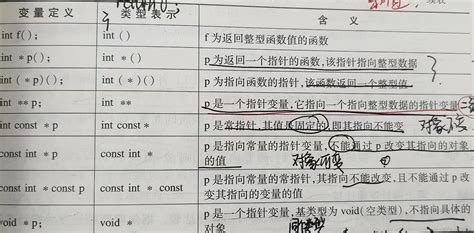 变量定义 类型表示 含义
int f(); int () f 为返回整型函数值的函数
int * p(); int * () p 为返回一个指针的函数,该指针指向整型数据
int ( * p)(); int ( * )() p 为指向函数的指针,该函数返回一个整型值
int ** p; int ** p 是一个指针变量,它指向一个指向整型数据的指针变量
int const * p int const * p 是常指针,其值是固定的,即其指向不能变 对象可变
const int * p; const int * p 是指向常量的指针变量,不能通过 p 改变其指向的对象
的值 对象不可变
const int * const p const int * const p 是指向常量的常指针,其指向不能改变,且不能通过 p 改
变其指向的变量的值
void * p; void * p 是一个指针变量,基类型为 void(空类型),不指向具体的
对象